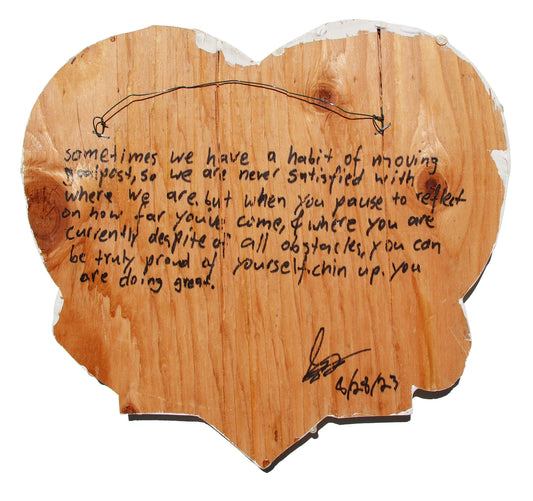 sometimes we have a habit of moving
goalpost, so we are never satisfied with
where we are. but when you pause to reflect
on how far youve come, & where you are
currently despite of all obstacles, you can
be truly proud of yourself. chin up. you
are doing great.
8/28/23